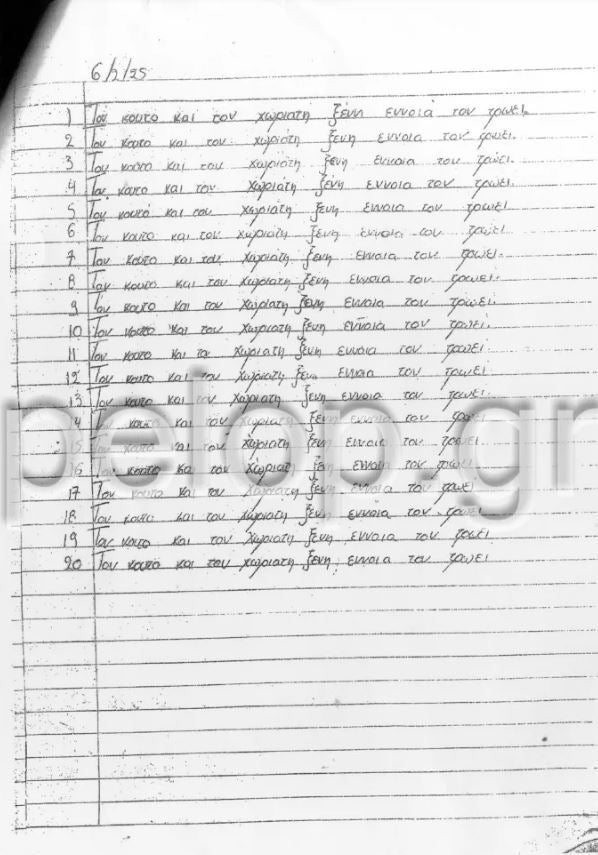 6/2/25
1 Τον κουτο και τον χωριατη ξένη εννοιά τον τρωει.
2 Τον κουτο και τον χωριάτη ξενη εννοια τον τρωει.
3 Τον κουτο και τον χωριάτη ξένη έννοια τον τρώει.
4 Τον κουτο και τον χωριάτη ξένη εννοια τον τρωει.
5 Τον κουτό και τον χωριάτη ξενη εννοια τον τρωει
6 Τον κουτο και τον χωριάτη ξενη εννοια τον τρώει
7 Τον κουτο και τον χωριατη ξενη εννοια τον τρωει.
8 Τον κουτο και τον χωριατη ξενη εννοια τον τρωει.
9 Τον κουτο και τον χωριατη ξενη εννοια τον τρωει.
10 Τον κουτο και τον χωριατη ξενη εννοια τον τρωει.
11 Τον κουτο και το χωριατη ξενη εννοια τον τρωει
12 Τον κουτο και τον χωριατη ξενη εννοια τον τρωει
13 Τον κουτο και τον χωριατη ξενη εννοια τον τρωει.
14 Τον κουτο και τον χωριατη ξενη εννοια τον τρωει
15 Τον κουτο και τον χωριατη ξενη εννοια τον τρωει
16 Τον κουτο και τον χωριατη ξενη εννοια τον τρωει
17 Τον κουτο και τον χωριατη ξενη εννοια τον τρωει
18 Τον κουτο και τον χωριατη ξενη εννοια τον τρωει
19 Τον κουτο και τον χωριατη ξενη εννοια τον τρωει
20 Τον κουτο και τον χωριατη ξενη εννοια τον τρωει
pelop.gr